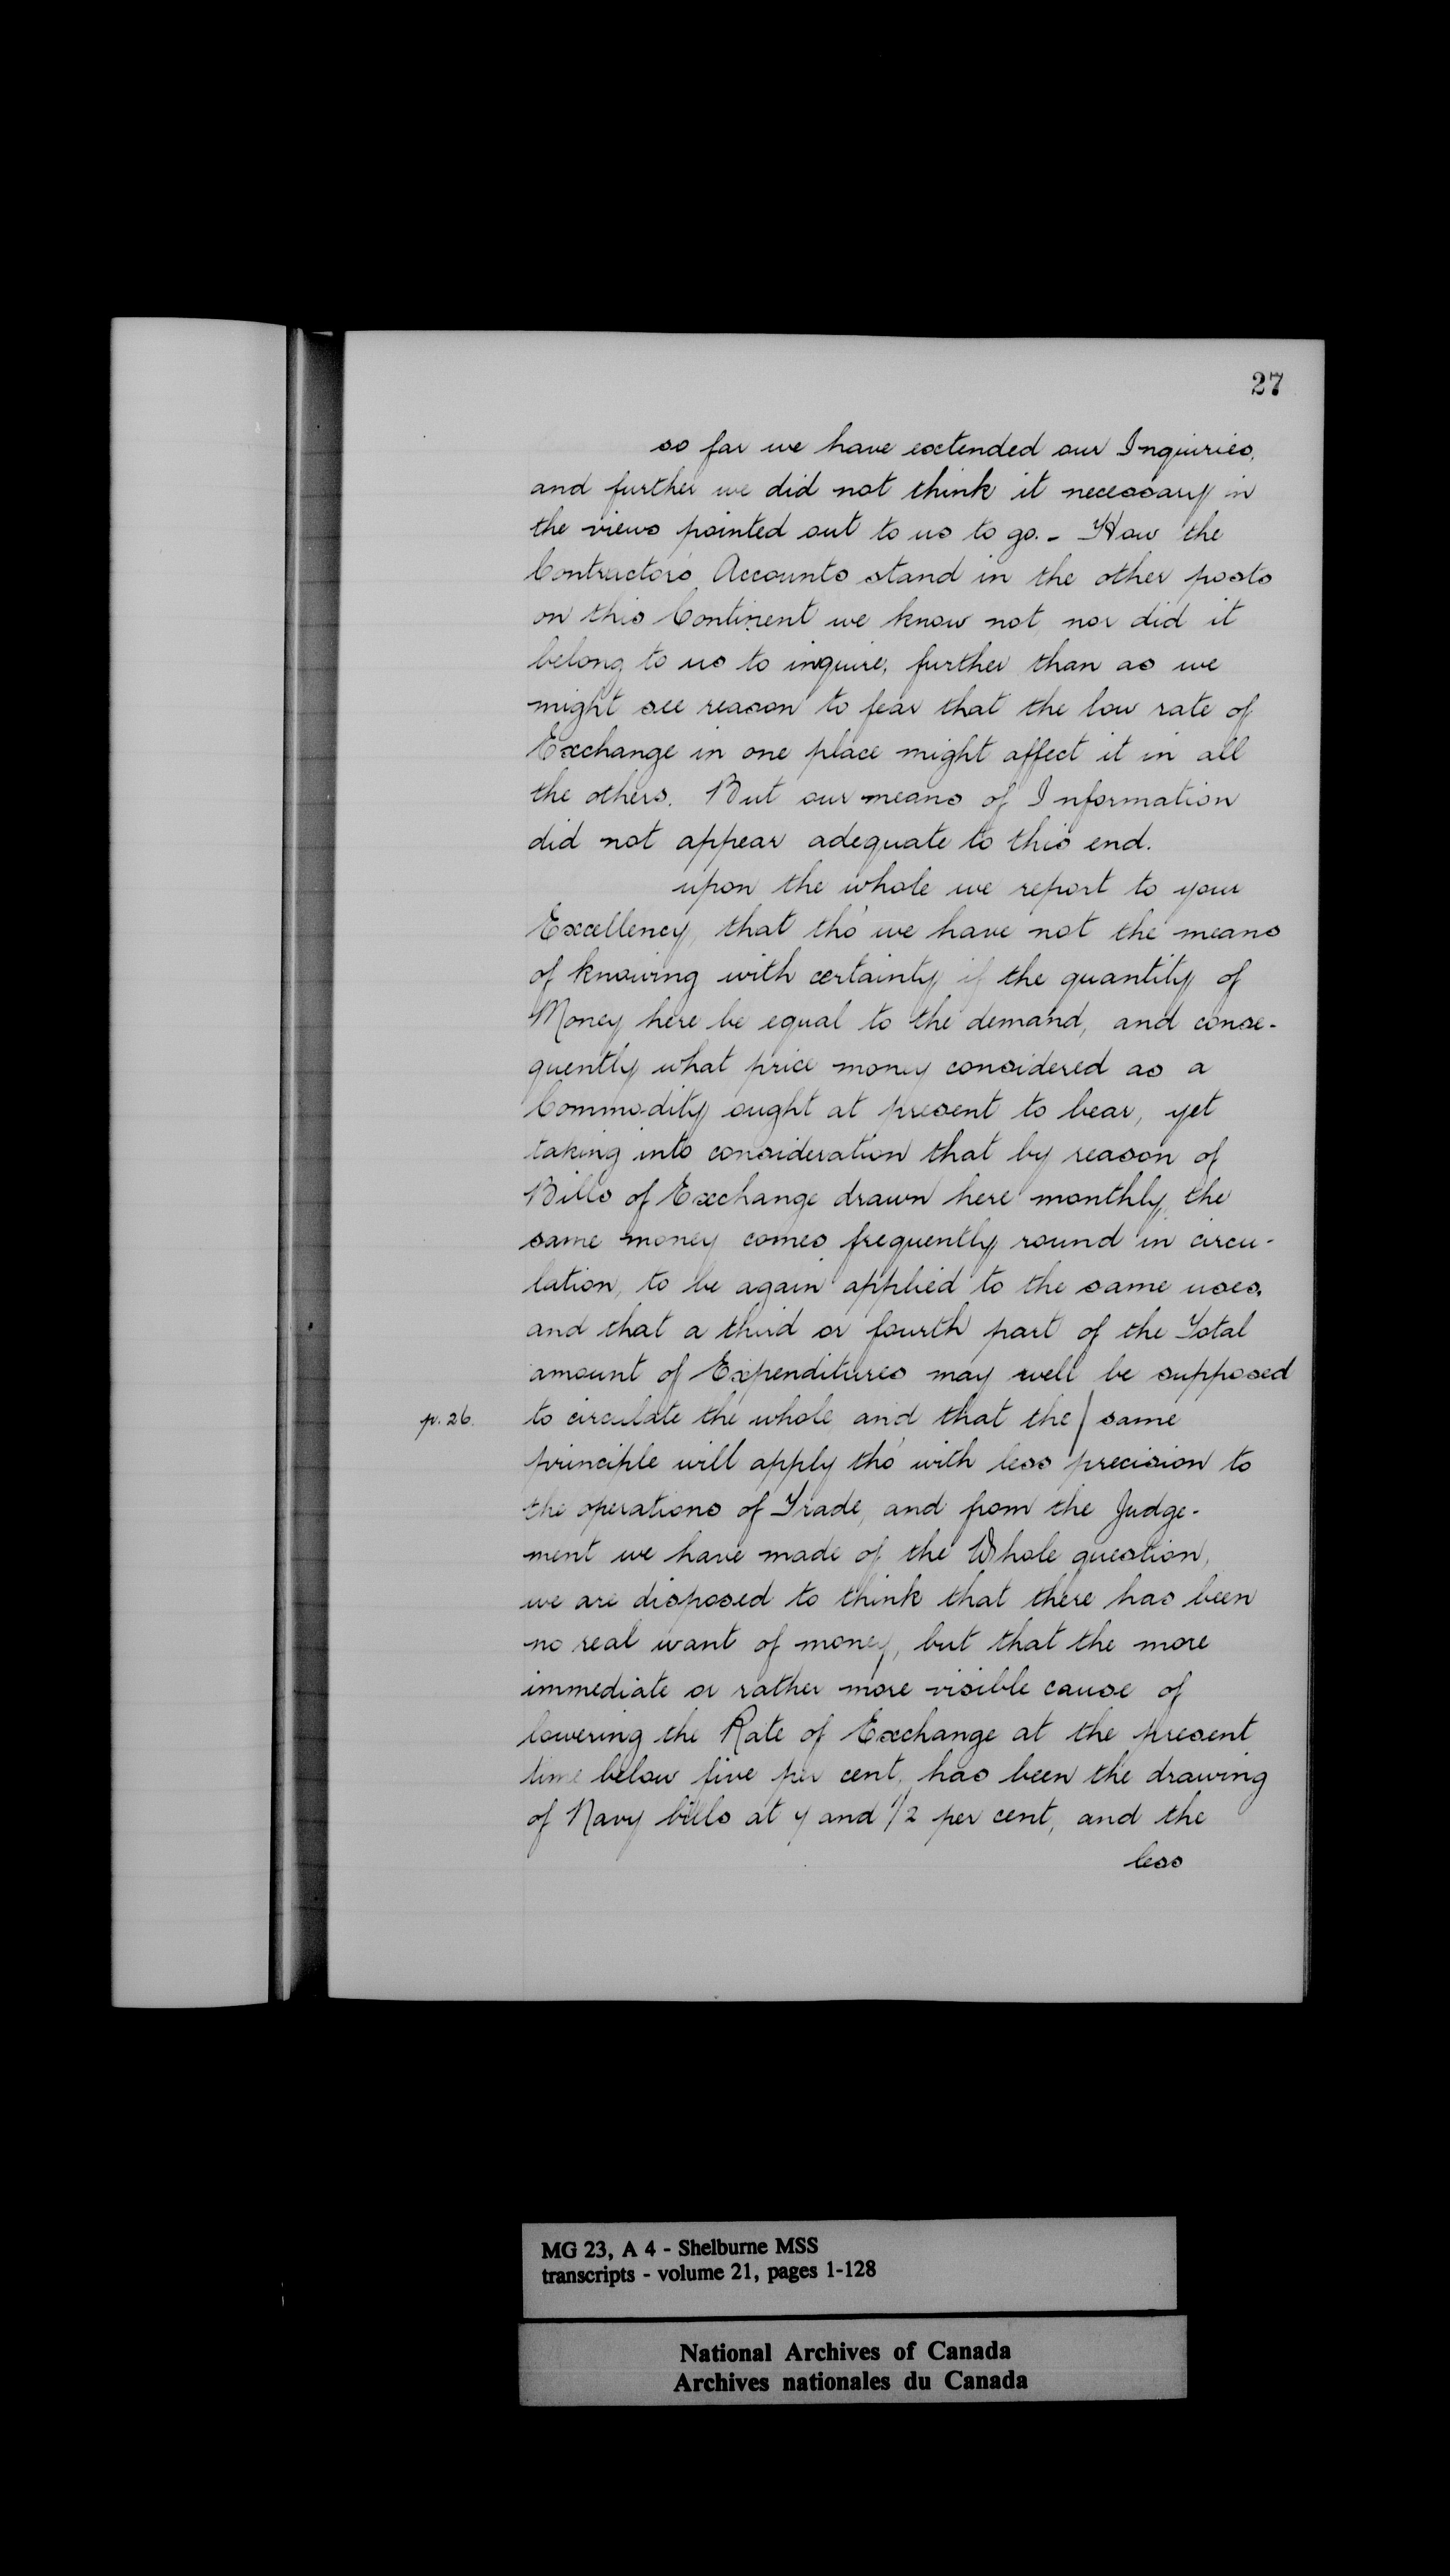 27
so far we have extended our Inquiries,
and further we did not think it necessary in
the views pointed out to us to go. - How the
Contractors Accounts stand in the other posts
on this Continent we know not nor did it
belong to us to inquire, further than as we
might see reason to fear that the low rate of
Exchange in one place might affect it in all
the others. But our means of Information
did not appear adequate to this end.
upon the whole we report to your
Excellency, that tho' we have not the means
of knowing with certainty if the quantity of
Money here be equal to the demand, and conse-
quently what price money considered as a
Commodity ought at present to bear, yet
taking into consideration that by reason of
Bills of Exchange drawn here monthly, the
same money comes frequently round in circu-
lation, to be again applied to the same uses,
and that a third or fourth part of the Total
amount of Expenditures may well be supposed
p. 26. to circulate the whole, and that the / same
principle will apply tho' with less precision to
the operations of Trade, and from the Judge-
ment we have made of the Whole question,
we are disposed to think that there has been
no real want of money, but that the more
immediate or rather more visible cause of
lowering the Rate of Exchange at the present
time below five per cent, has been the drawing
of Navy bills at 4 and 1/2 per cent, and the
less
MG 23, A 4 - Shelburne MSS
transcripts - volume 21, pages 1-128
National Archives of Canada
Archives nationales du Canada